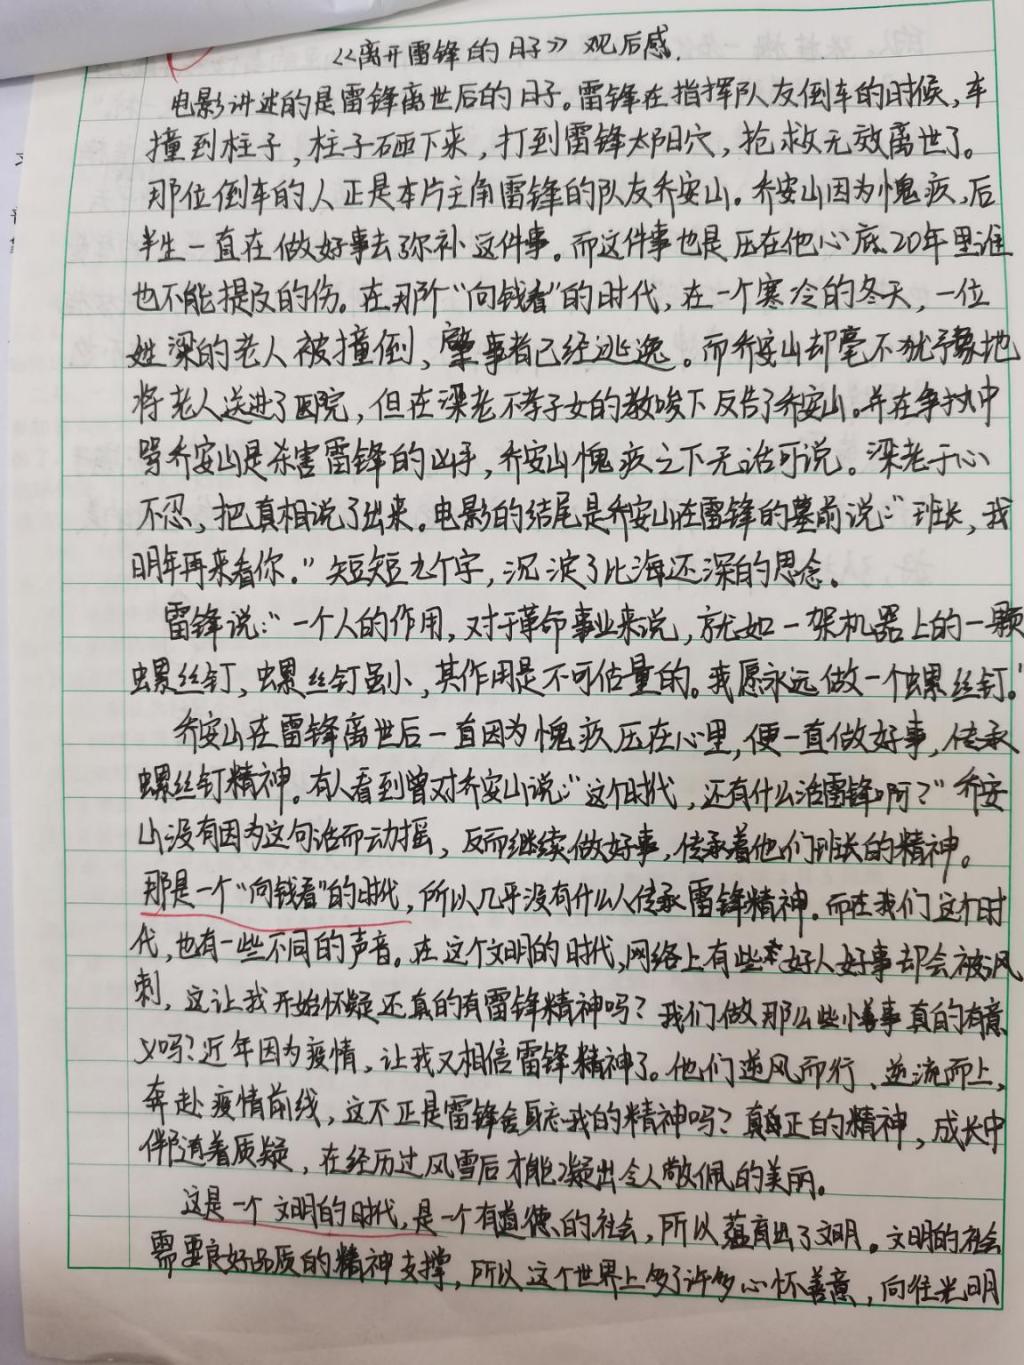 《离开雷锋的日子》观后感.
电影讲述的是雷锋离世后的日子。雷锋在指挥队友倒车的时候,车
撞到柱子,柱子砸下来,打到雷锋太阳穴,抢救无效离世了。
那位倒车的人正是本片主角雷锋的队友乔安山。乔安山因为愧疚,后
半生一直在做好事去弥补这件事。而这件事也是压在他心底20年里谁
也不能提及的伤。在那个“向钱看”的时代,在一个寒冷的冬天,一位
姓梁的老人被撞倒,肇事者已经逃逸。而乔安山却毫不犹予象地
将老人送进了医院,但在梁老不孝子女的教唆下反告了乔安山。并在争执中
骂乔安山是杀害雷锋的凶手,乔安山愧疚之下无话可说。梁老于心
不忍,把真相说了出来。电影的结尾是乔安山在雷锋的墓前说:“班长,我
明年再来看你.”短短九个字,沉淀了比海还深的思念.
雷锋说:“一个人的作用,对于革命事业来说,就如一架机器上的一颗
螺丝钉,螺丝钉虽小,其作用是不可估量的。我愿永远做一个螺丝钉。”
乔安山在雷锋离世后一直因为愧疚压在心里,便一直做好事,传承
螺丝钉精神。有人看到曾对乔安山说:“这个时代,还有什么活雷锋啊?”乔安
山没有因为这句话而动摇,反而继续做好事,传承着他们班长的精神。
那是一个“向钱看”的时代,所以几乎没有什么人传承雷锋精神.而在我们这个时
代,也有一些不同的声音。在这个文明的时代,网络上有些好人好事却会被讽
刺,这让我开始怀疑还真的有雷锋精神吗?我们做那么些小善事真的有意
义吗?近年因为疫情,让我又相信雷锋精神了。他们逆风而行、逆流而上,
奔赴疫情前线,这不正是雷锋舍身忘我的精神吗?真正的精神,成长中
伴随着质疑,在经历过风雪后才能凝出令人敬佩的美丽。
这是一个文明的时代,是一个有道德的社会,所以蕴育出了文明。文明的社会
需要良好品质的精神支撑,所以这个世界上多了许多心怀善意,向往光明